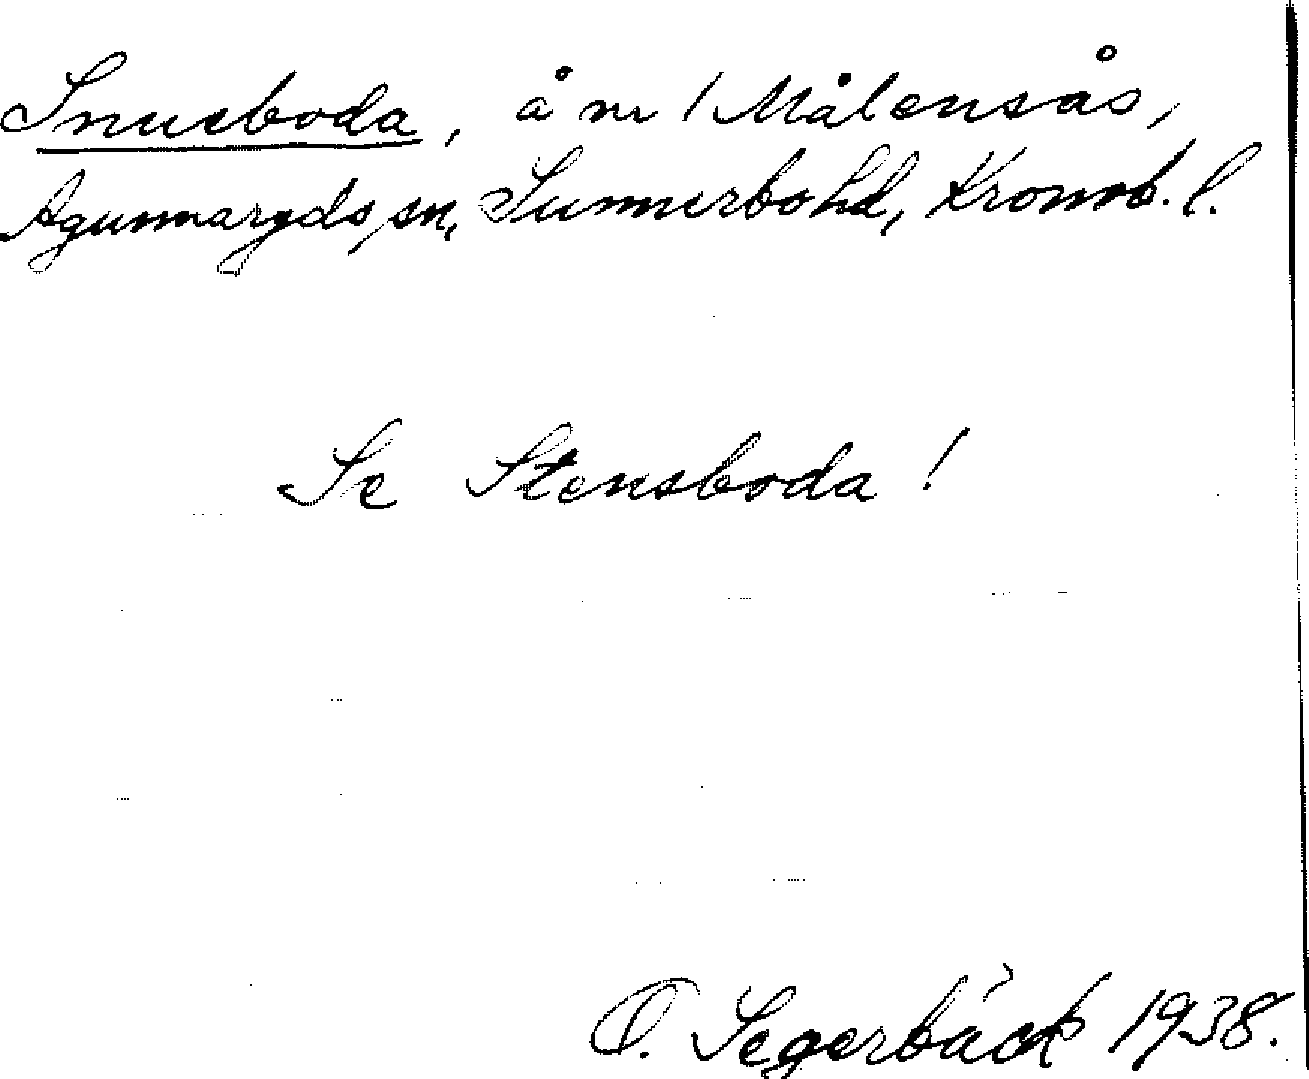 Snusboda, å nr 1 Målensås,
Agunnaryds sn, Sunnerbo hd, Kronob. l.
Se Stensboda!
O. Segerbäck 1938.